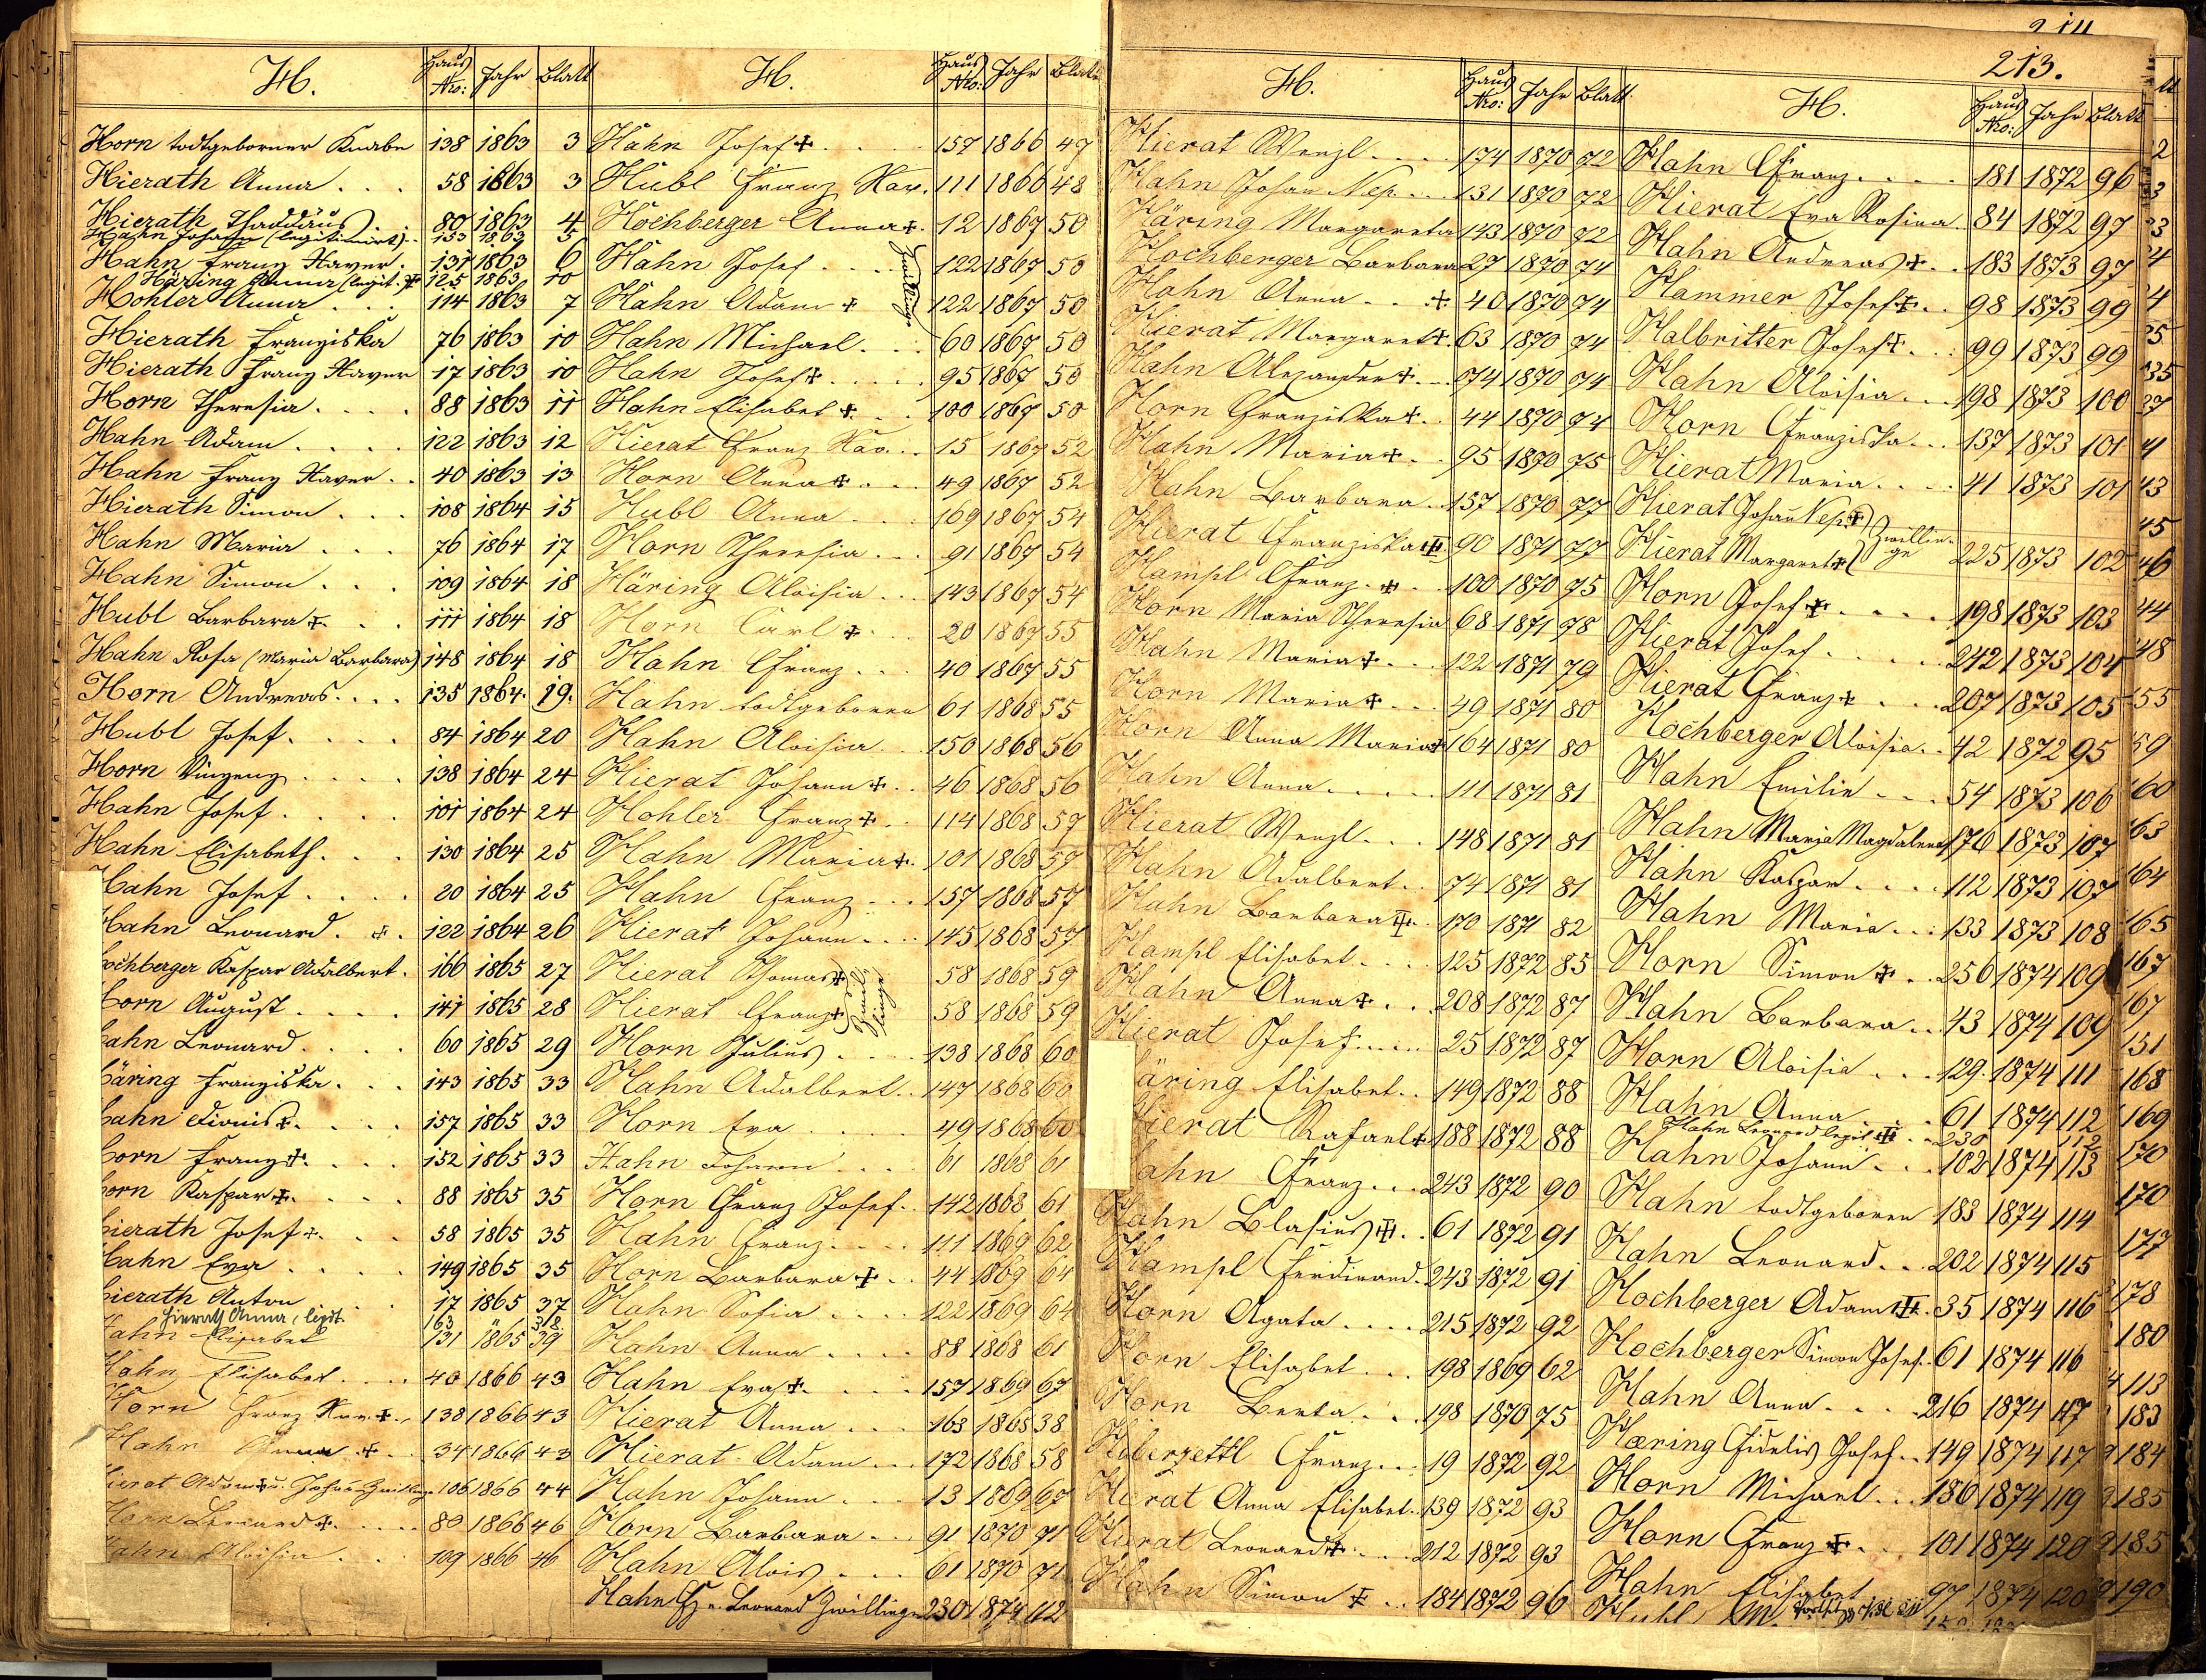 H. Haus Nro: Jahr Blatt
Horn todtgeborner Knabe 138 1863 3
Hierath Anna . . . 58 1863 3
Hierath Thaddäus . . 80 1863 4
Hahn Johann (legitimirt) . . 153 1863 5
Hahn Franz Xaver . 131 1863 6
Häring Anna (legit. ✝ 125 1863 10
Hohler Anna . . 114 1863 7
Hierath Franziska 76 1863 10
Hierath Franz Xaver 17 1863 10
Horn Theresia . . . . 88 1863 11
Hahn Adam . . . . 122 1863 12
Hahn Franz Xaver . . 40 1863 13
Hierath Simon . . . 108 1864 15
Hahn Maria . . . 76 1864 17
Hahn Simon . . . 109 1864 18
Hubl Barbara ✝ . . . 111 1864 18
Hahn Rosa (Maria Barbara) 148 1864 18
Horn Andreas . . . . 135 1864. 19.
Hubl Josef . . . . 84 1864 20
Horn Vinzenz . . . . 138 1864 24
Hahn Josef . . . . 101 1864 24
Hahn Elisabeth . . . 130 1864 25
Hahn Josef . . . . 20 1864 25
Hahn Leonard . ✝ . 122 1864 26
ochberger Kaspar Adalbert . 166 1865 27
orn August . . . . 141 1865 28
ahn Leonard . . . . 60 1865 29
äring Franziska . . . 143 1865 33
ahn Dionis ✝ . . . . 157 1865 33
orn Franz ✝ . . . . 152 1865 33
orn Kaspar ✝ . . . . 88 1865 35
ierath Josef ✝ . . . 58 1865 35
ahn Eva . . . . 149 1865 35
ierath Anton . . 17 1865 37
Hierath Anna, legit. 163 " 312
Hahn Elisabet 131 1865 39
Hahn Elisabet . . . . 40 1866 43
Horn Franz Xav. ✝ . . 138 1866 43
Hahn Anna ✝ . . 34 1866 43
Hierat Adam ✝ u. Johan Zwillinge 106 1866 44
Horn Leonard ✝ . . . . 80 1866 46
Hahn Aloisia . . . 109 1866 46
H. Haus Nro: Jahr Blatt
Hahn Josef ✝ . . . . 157 1866 47
Hubl Franz Xav. 111 1866 48
Hochberger Anna ✝ . 12 1867 50
Hahn Josef . . . . 122 1867 50
Zwillinge
Hahn Adam ✝ 122 1867 50
Hahn Michael . . . 60 1867 50
Hahn Josef ✝ . . . . . 95 1867 50
Hahn Elisabet ✝ . . . 100 1867 50
Hierat Franz Xav. . . 15 1867 52
Horn Anna ✝ . . . 49 1867 52
Hubl Anna . . . . 169 1867 54
Horn Theresia . . . 91 1867 54
Häring Aloisia . . . 143 1867 54
Horn Carl ✝ . . . 20 1867 55
Hahn Franz . . . 40 1867 55
Hahn todtgeboren 61 1868 55
Hahn Aloisia . . 150 1868 56
Hierat Johann ✝ . . 46 1868 56
Hohler Franz ✝ . . 114 1868 57
Hahn Maria ✝ . 101 1868 57
Hahn Franz . . . 157 1868 57
Hierat Johann . . . . 145 1868 57
Hierat Thomas ✝ 58 1868 59
Zwillinge
Hierat Franz ✝ 58 1868 59
Horn Julius . . . . 138 1868 60
Hahn Adalbert . . 147 1868 60
Horn Eva . . . . 49 1868 60
Hahn Johann . . . . 61 1868 61
Horn Franz Josef . . 142 1868 61
Hahn Franz . . . . 111 1869 62
Horn Barbara ✝ . . 44 1869 64
Hahn Sofia . . . . 122 1869 64
Hahn Anna . . . . 88 1868 61
Hahn Eva ✝ . . . . 157 1869 67
Hierat Anna . . . 163 1865 38
Hierat Adam . . . 172 1868 58
Hahn Johann . . . 13 1869 67
Horn Barbara . . . 91 1870 71
Hahn Alois . . . 61 1870 71
Hahn Fz u. Leonard Zwillinge 230 1874 112
H. Haus Nro: Jahr Blatt
Hierat Wenzl . . . . 174 1870 72
Hahn Johan Nep. . . . 131 1870 72
Häring Margareta 143 1870 72
Hochberger Barbara 27 1870 74
Hahn Anna . . . ✝ 40 1870 74
Hierat Margaret ✝ . 63 1870 74
Hahn Alexander ✝ . . . 74 1870 74
Horn Franziska ✝ . . 44 1870 74
Hahn Maria ✝ . . 95 1870 75
Hahn Barbara . . 157 1870 77
Hierat Franziska ✝ 90 1871 77
Hampl Franz . ✝ . 100 1870 75
Horn Maria Theresia 68 1871 78
Hahn Maria ✝ . . . 122 1871 79
Horn Maria ✝ . . . 49 1871 80
Horn Anna Maria ✝ 164 1871 80
Hahn Anna . . . . . 111 1871 81
Hierat Wenzl . . . 148 1871 81
Hahn Adalbert . . 74 1871 81
Hahn Barbara ✝ . 170 1871 82
Hampl Elisabet . . . . 125 1872 85
Hahn Anna ✝ . . . 208 1872 87
Hierat Josef . . . . . 25 1872 87
äring Elisabet . . 149 1872 88
Hierat Rafael ✝ 188 1872 88
ahn Franz . . . 243 1872 90
Hahn Blasius ✝ . . 61 1872 91
Hampl Ferdinand . 243 1872 91
Horn Agata . . . . 215 1872 92
Horn Elisabet . . . 198 1869 62
Horn Berta . . . 198 1870 75
Haberzettl Franz . . . 19 1872 92
Hierat Anna Elisabet . . 139 1872 93
Hierat Leonard ✝ . . . . 212 1872 93
Hahn Simon ✝ . . 184 1872 96
213.
H. Haus Nro: Jahr Blatt
Hahn Franz . . . . 181 1872 96
Hierat Eva Rosina . 84 1872 97
Hahn Andreas ✝ . . 183 1873 97
Hammer Josef ✝ . . 98 1873 99
Halbritter Josef ✝ . . . 99 1873 99
Hahn Aloisia . . . 198 1873 100
Horn Franziska . . . 137 1873 101
Hierat Maria . . . . 41 1873 101
Hierat Johan Nep. ✝
Zwillinge
Hierat Margaret ✝ 225 1873 102
Horn Josef ✝ . . . . 198 1873 103
Hierat Josef . . . . . 242 1873 104
Hierat Franz ✝ . . . 207 1873 105
Hochberger Aloisia . . 42 1872 95
Hahn Emilie . . . 54 1873 106
Hahn Maria Magdalena 176 1873 107
Hahn Kaspar . . . . 112 1873 107
Hahn Maria . . . 133 1873 108
Horn Simon ✝ . . 256 1874 109
Hahn Barbara . . 43 1874 109
Horn Aloisia . . . 129 1874 111
Hahn Anna . . . 61 1874 112
Hahn Leonard legit ✝ . . 230 112
Hahn Johann . . . 102 1874 113
Hahn todtgeboren 183 1874 114
Hahn Leonard . . . 202 1874 115
Hochberger Adam ✝ . 35 1874 116
Hochberger Simon Josef . 61 1874 116
Hahn Anna . . . . 216 1874 117
Hæring Fidelis Josef . . 149 1874 117
Horn Michael . . . 186 1874 119
Horn Franz ✝ . . 101 1874 120
Hahn Elisabet 97 1874 120
Hubl
214